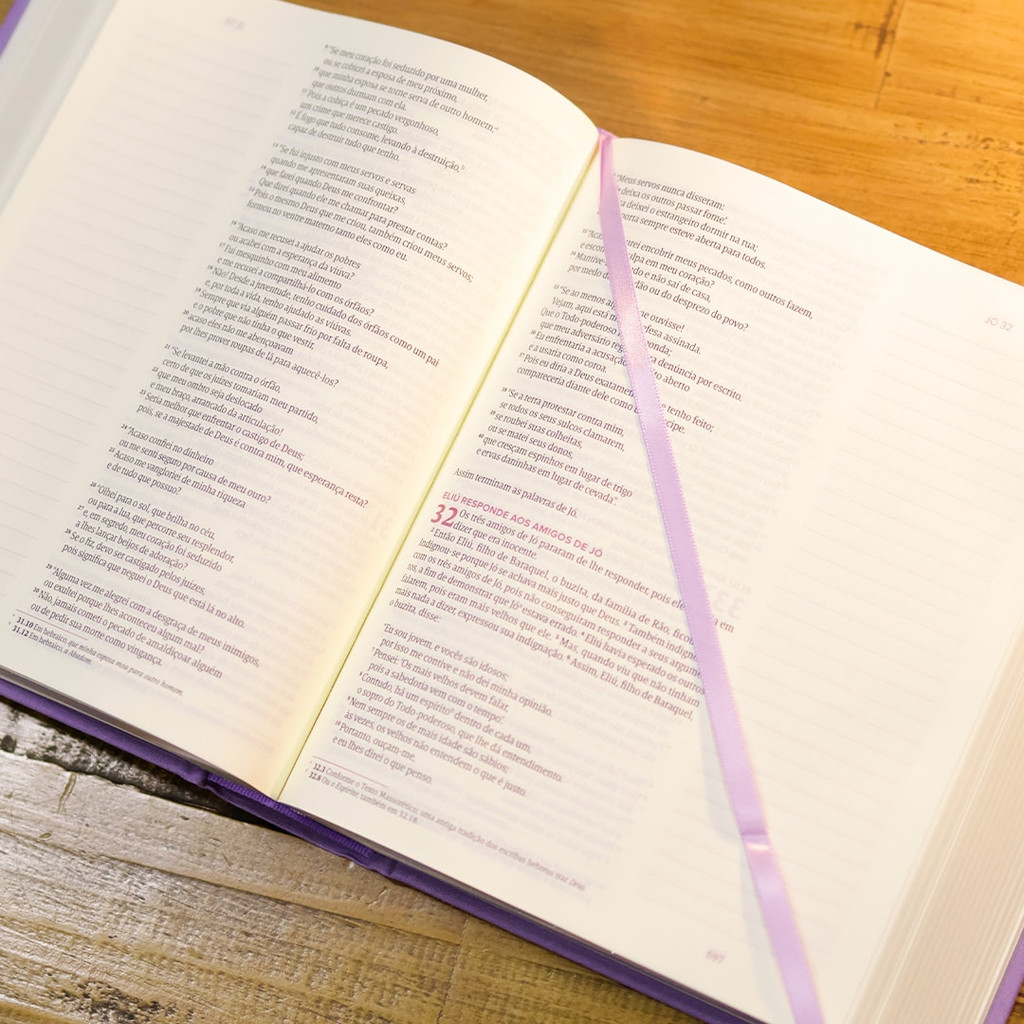 JÓ 31
⁹ "Se meu coração foi seduzido por uma mulher,
ou se cobicei a esposa de meu próximo,
¹⁰ que minha esposa se torne serva de outro homem;ᵃ
que outros durmam com ela.
¹¹ Pois a cobiça é um pecado vergonhoso,
um crime que merece castigo.
¹² É fogo que tudo consome, levando à destruição,ᵇ
capaz de destruir tudo que tenho.
¹³ "Se fui injusto com meus servos e servas
quando me apresentaram suas queixas,
¹⁴ que farei quando Deus me confrontar?
Que direi quando ele me chamar para prestar contas?
¹⁵ Pois o mesmo Deus que me criou, também criou meus servos;
formou no ventre materno tanto eles como eu.
¹⁶ "Acaso me recusei a ajudar os pobres
ou acabei com a esperança da viúva?
¹⁷ Fui mesquinho com meu alimento
e me recusei a compartilhá-lo com os órfãos?
¹⁸ Não! Desde a juventude, tenho cuidado dos órfãos como um pai
e, por toda a vida, tenho ajudado as viúvas.
¹⁹ Sempre que via alguém passar frio por falta de roupa,
e o pobre que não tinha o que vestir,
²⁰ acaso eles não me abençoavam
por lhes prover roupas de lã para aquecê-los?
²¹ "Se levantei a mão contra o órfão,
certo de que os juízes tomariam meu partido,
²² que meu ombro seja deslocado
e meu braço, arrancado da articulação!
²³ Seria melhor que enfrentar o castigo de Deus;
pois, se a majestade de Deus é contra mim, que esperança resta?
²⁴ "Acaso confiei no dinheiro
ou me senti seguro por causa de meu ouro?
²⁵ Acaso me vangloriei de minha riqueza
e de tudo que possuo?
²⁶ "Olhei para o sol, que brilha no céu,
ou para a lua, que percorre seu resplendor,
²⁷ e, em segredo, meu coração foi seduzido
a lhes lançar beijos de adoração?
²⁸ Se o fiz, devo ser castigado pelos juízes,
pois significa que neguei o Deus que está lá no alto.
²⁹ "Alguma vez me alegrei com a desgraça de meus inimigos,
ou exultei porque lhes aconteceu algum mal?
³⁰ Não, jamais cometi o pecado de amaldiçoar alguém
ou de pedir sua morte como vingança.
31.10 Em hebraico, que minha esposa moa para outro homem.
31.12 Em hebraico, a Abadom.
"Meus servos nunca disseram:
deixa os outros passar fome'.
deixei o estrangeiro dormir na rua;
porta sempre esteve aberta para todos.
encobrir meus pecados, como outros fazem,
culpa em meu coração?
e não saí de casa,
por medo da multidão ou do desprezo do povo?
³⁵ "Se ao menos alguém me ouvisse!
Vejam, aqui está minha defesa assinada.
Que o Todo-poderoso me responda;
que meu adversário registre a denúncia por escrito.
³⁶ Eu enfrentaria a acusação de peito aberto
e a usaria como coroa.
³⁷ Pois eu diria a Deus exatamente o que tenho feito;
compareceria diante dele como um príncipe.
³⁸ "Se a terra protestar contra mim,
se todos os seus sulcos clamarem,
³⁹ se roubei suas colheitas,
ou se matei seus donos,
⁴⁰ que cresçam espinhos em lugar de trigo
e ervas daninhas em lugar de cevada".
Assim terminam as palavras de Jó.
ELIÚ RESPONDE AOS AMIGOS DE JÓ
32 Os três amigos de Jó pararam de lhe responder, pois ele em
dizer que era inocente.
² Então Eliú, filho de Baraquel, o buzita, da família de Rão, ficou
indignou-se porque Jó se achava mais justo que Deus. ³ Também indignou-
com os três amigos de Jó, pois não conseguiram responder a seus argumen
tos, a fim de demonstrar que Jóᵃ estava errado. ⁴ Eliú havia esperado os outros
falarem, pois eram mais velhos que ele. ⁵ Mas, quando viu que não tinham
mais nada a dizer, expressou sua indignação. ⁶ Assim, Eliú, filho de Baraquel,
o buzita, disse:
"Eu sou jovem, e vocês são idosos;
por isso me contive e não dei minha opinião.
⁷ Pensei: 'Os mais velhos devem falar,
pois a sabedoria vem com o tempo'.
⁸ Contudo, há um espíritoᵇ dentro de cada um,
o sopro do Todo-poderoso, que lhe dá entendimento.
⁹ Nem sempre os de mais idade são sábios;
às vezes, os velhos não entendem o que é justo.
¹⁰ Portanto, ouçam-me,
e eu lhes direi o que penso.
32.3 Conforme o Texto Massorético; uma antiga tradição dos escribas hebreus traz Deus.
32.8 Ou o Espírito; também em 32.18.
JÓ 32
697